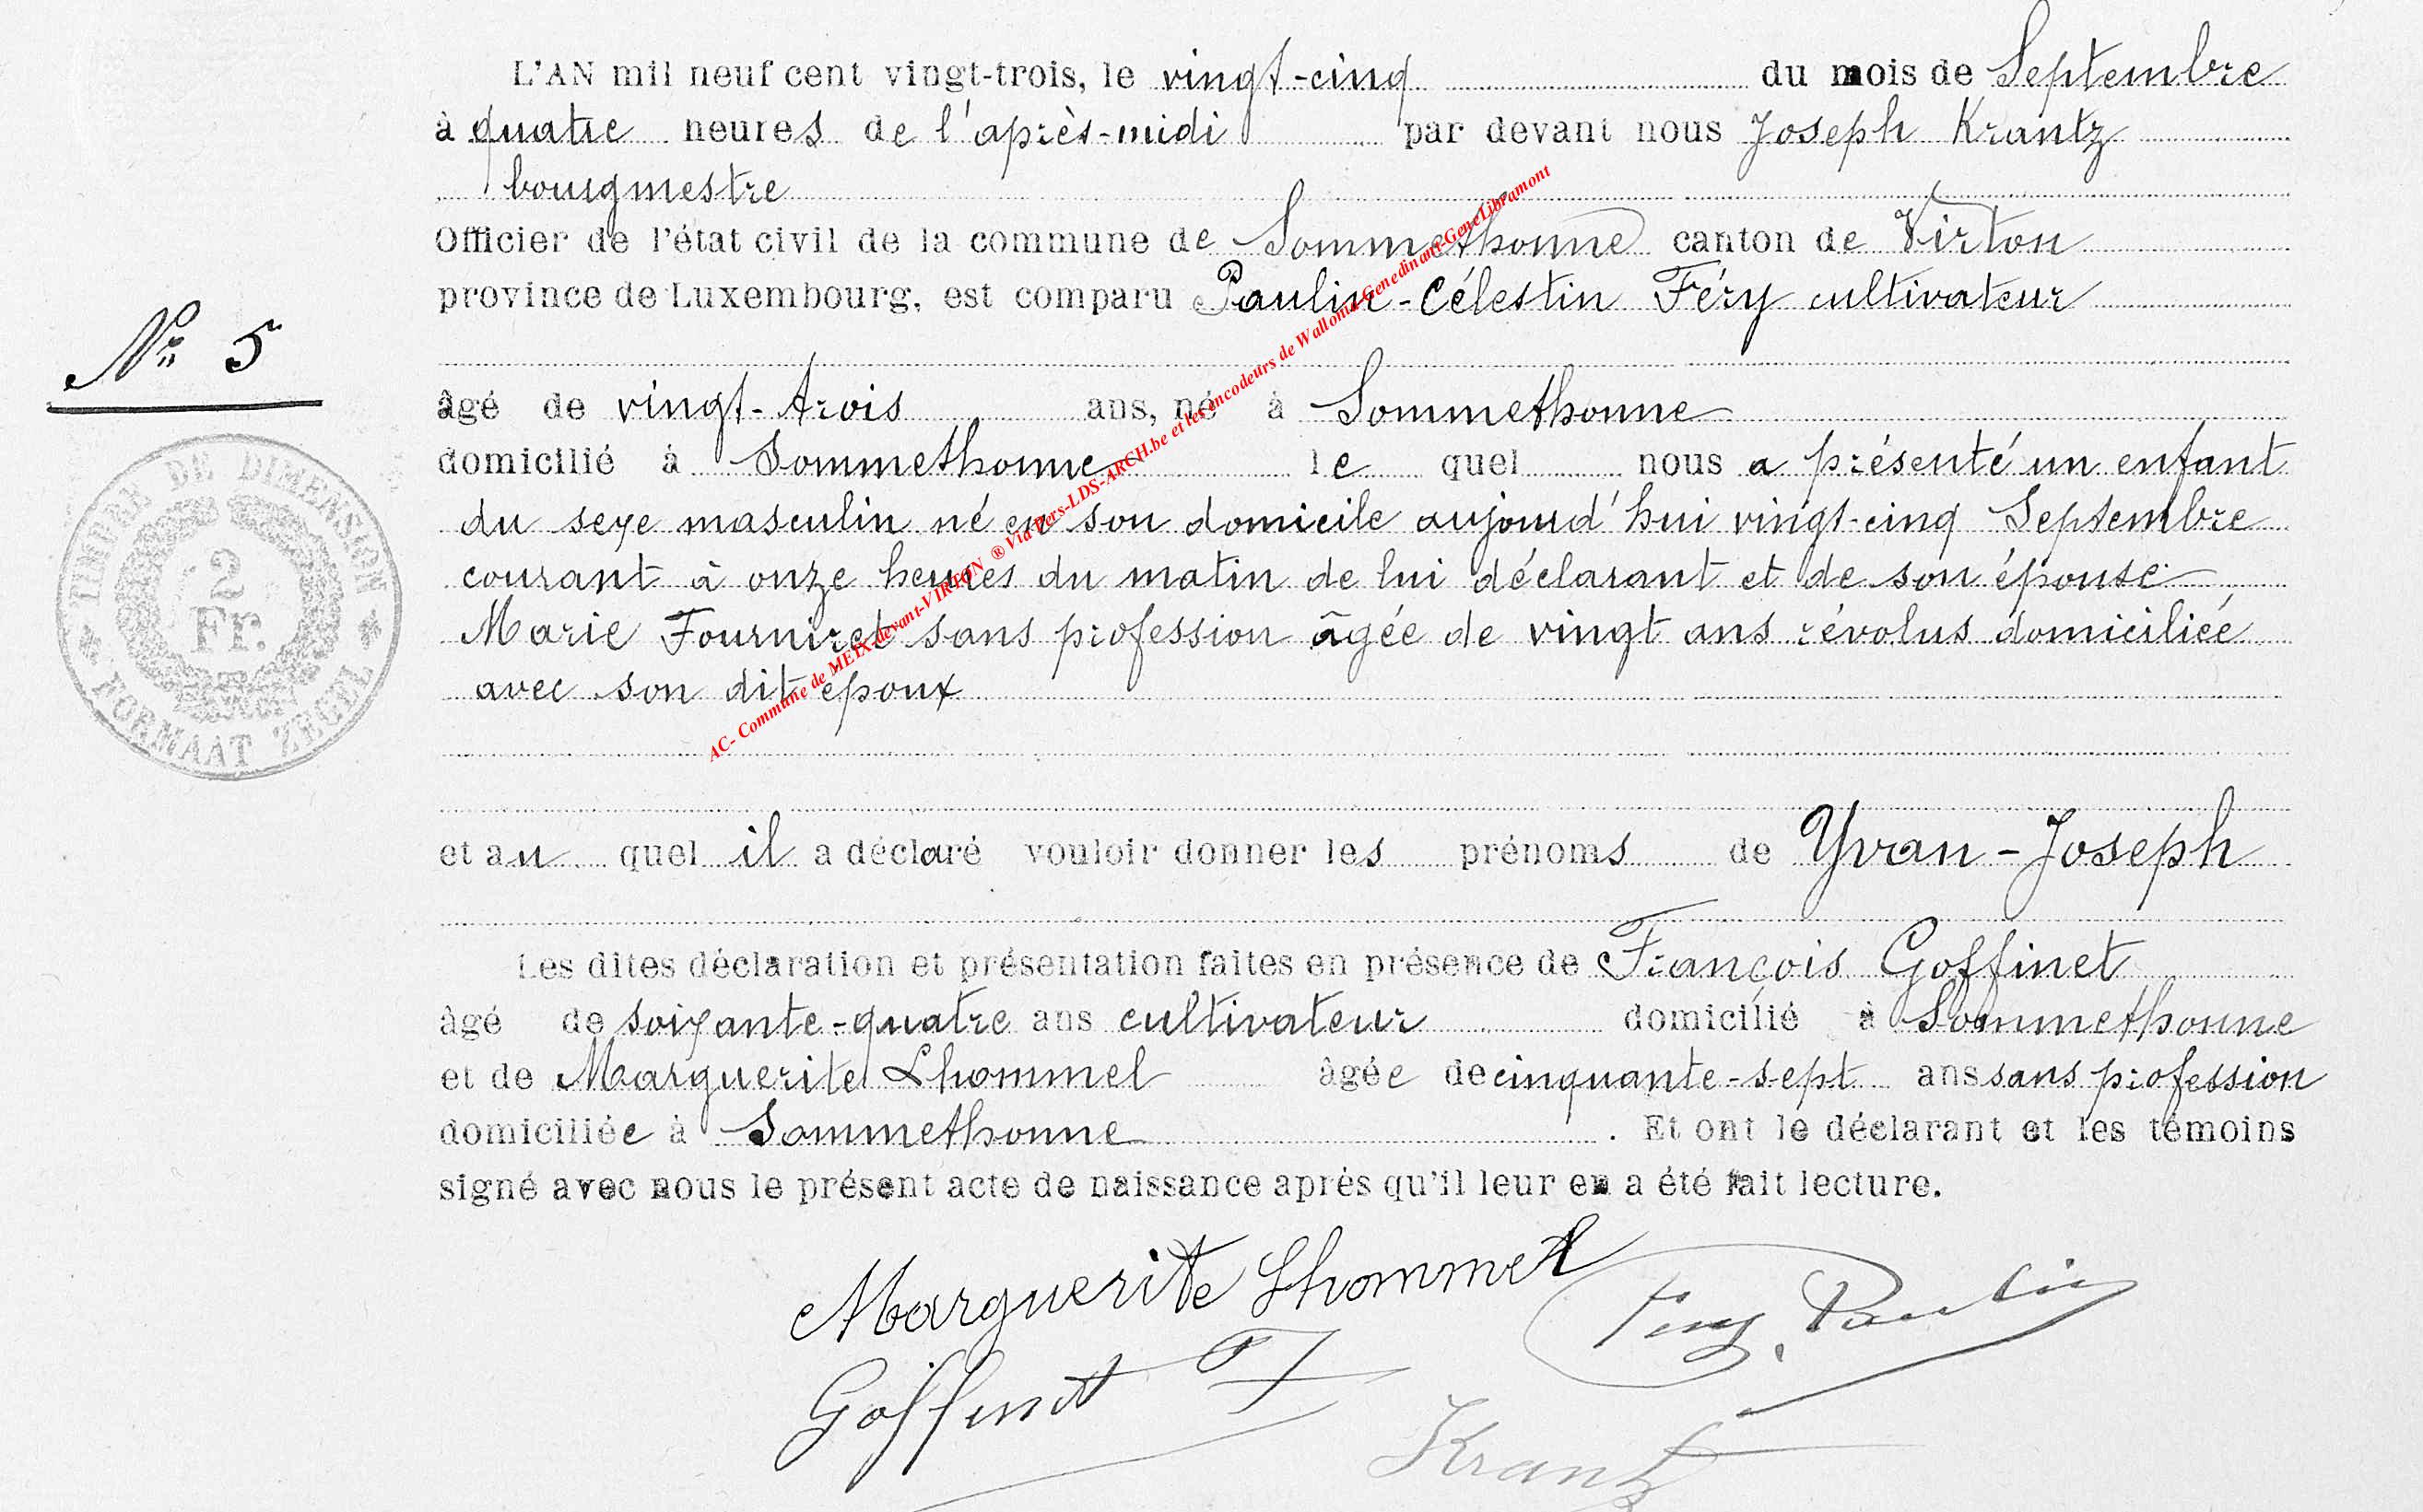 L'AN mil neuf cent vingt-trois, le vingt-cinq du mois de Septembre
à quatre heures de l'après-midi par devant nous Joseph Krantz
bourgmestre
Officier de l'état civil de la commune de Sommethonne canton de Virton
province de Luxembourg, est comparu Paulin-Célestin Féry cultivateur
Nº 5
âgé de vingt-trois ans, né à Sommethonne
domicilié à Sommethonne le quel nous a présenté un enfant
du sexe masculin né en son domicile aujourd'hui vingt-cinq Septembre
courant à onze heures du matin de lui déclarant et de son épouse
Marie Fourniret sans profession âgée de vingt ans révolus domiciliée
avec son dit époux
TIMBRE DE DIMENSION
2
Fr.
FORMAAT ZEGEL
AC- Commune de MEIX-devant-VIRTON ® Via Pers-LDS-ARCH.be et les encodeurs de Wallonia-Genedinant-GeneLibramont
et au quel il a déclaré vouloir donner les prénoms de Yvan-Joseph
Les dites déclaration et présentation faites en présence de François Goffinet
âgé de soixante-quatre ans cultivateur domicilié à Sommethonne
et de Marguerite Lhommel âgée de cinquante-sept ans sans profession
domiciliée à Sommethonne . Et ont le déclarant et les témoins
signé avec nous le présent acte de naissance après qu'il leur en a été fait lecture.
Marguerite Lhommel
Fery. Paulin
Goffinet F
Krantz